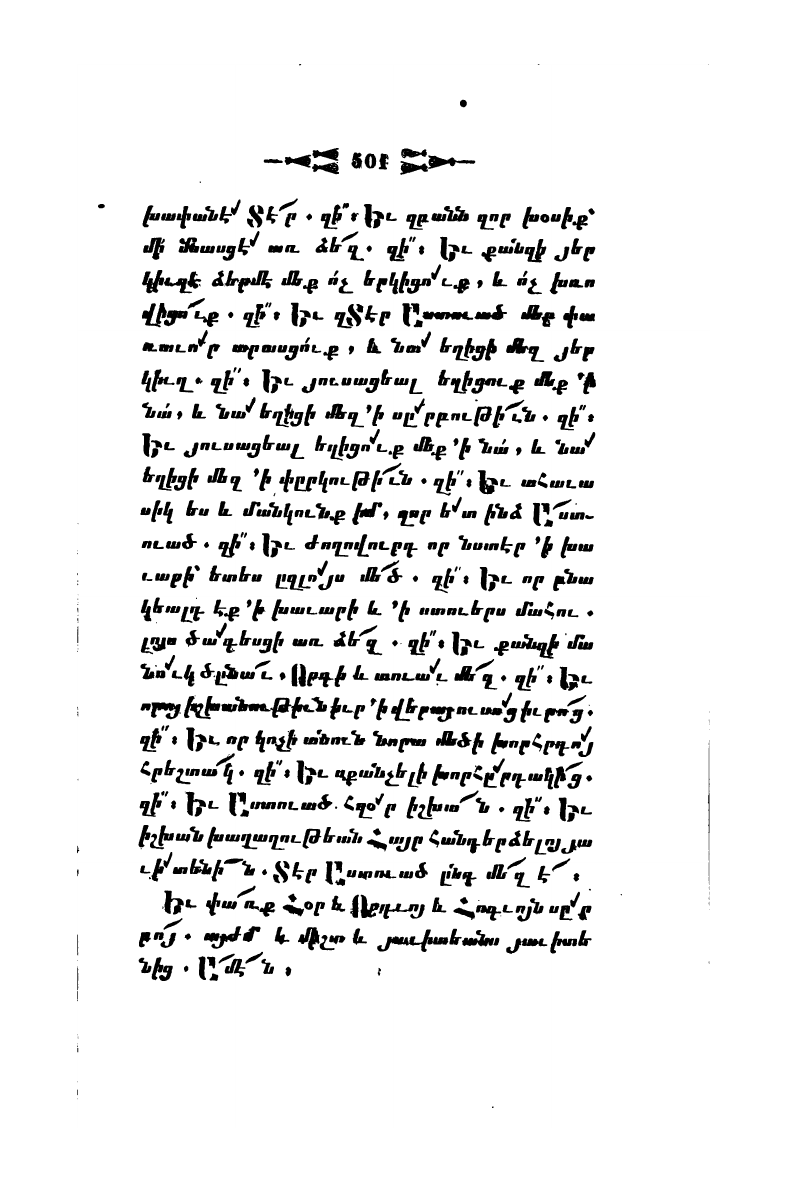 501
խափանէ՛ Տէ՜ր . զի՞ : Եւ զբանն զոր խօսիք՝
մի՛ մնասցէ՛ առ ձե՜զ . զի՞ : Եւ քանզի յեր
կիւղէ ձերմէ մեք ո՛չ երկիցո՛ւք , և ո՛չ խռո
վիցո՜ւք . զի՞ : Եւ զՏէր Աստուած մեր փա
ռաւո՛ր արասցո՛ւք , և նա՛ եղիցի մեզ յեր
կիւղ . զի՞ : Եւ յուսացեալ եղիցուք մեք ՚ի
նա՛ , և նա՛ եղիցի մեզ ՚ի սր՛րբութի՜ւն . զի՞ :
Եւ յուսացեալ եղիցո՛ւք մեք ՚ի նա՛ , և նա՛
եղիցի մեզ ՚ի փըրկութի՜ւն . զի՞ : Եւ ահաւա
սիկ ես և մանկունք իմ , զոր ե՛տ ինձ Ա՜ստ֊
ուած . զի՞ : Եւ ժողովուրդ որ նստէր ՚ի խա
ւարի՝ ետես ըզլո՛յս մե՜ծ . զի՞ : Եւ որ բնա
կեալդ էք ՚ի խաւարի և ՚ի ստուերս մահու .
լոյս ծա՛գեսցի առ ձե՜զ . զի՞ : Եւ քանզի մա
նո՛ւկ ծընա՜ւ , Որդի և տուա՛ւ մե՜զ . զի՞ : Եւ
որոյ իշխանութիւն իւր ՚ի վերայ ուսո՛ց իւրո՜ց .
զի՞ : Եւ որ կոչի անուն նորա մեծի խորհրդո՛յ
հրեշտա՜կ . զի՞ : Եւ սքանչելի խորհը՛րդակի՜ց .
զի՞ : Եւ Աստուած հզօ՛ր իշխա՜ն . զի՞ : Եւ
իշխան խաղաղութեան Հայր հանդերձելոյ յա
ւի՛տենի՜ն . Տէր Աստուած ընդ մե՜զ է՜ :
Եւ փա՜ռք Հօր և Որդւոյ և Հոգւոյն սը՛ր
բո՜յ . այժմ և միշտ և յաւիտեանս յաւիտե
նից . Ա՜մէ՜ն :